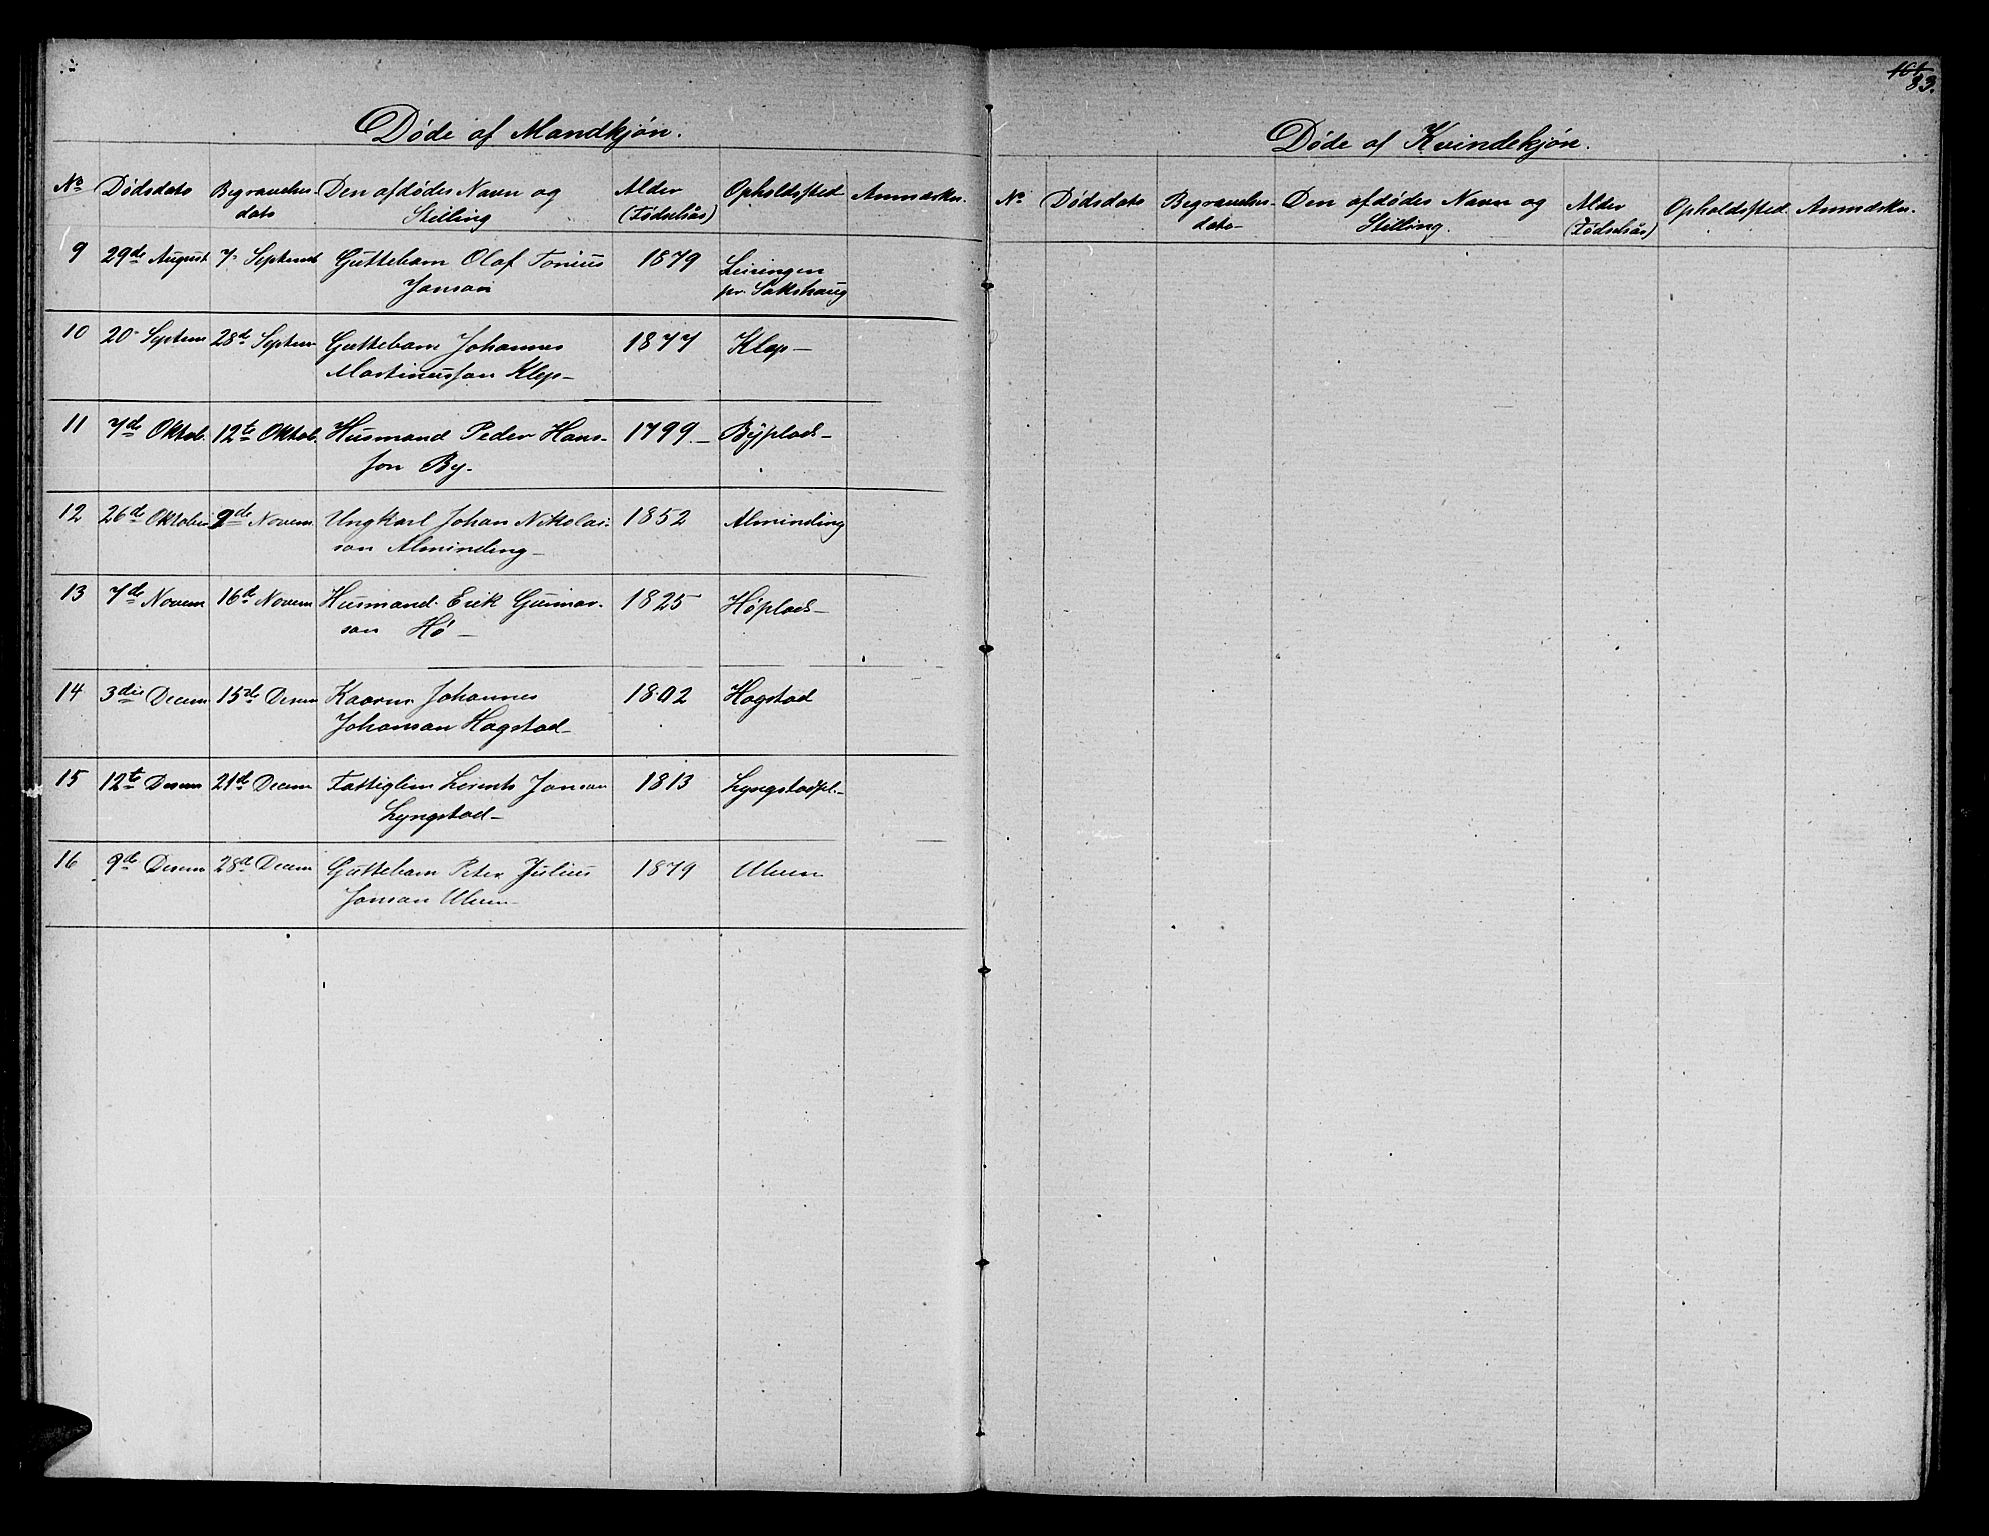 101
83.
Døde af Mandkjøn.
No Dødsdato Begravelses- dato Den afdødes Navn og Stilling Alder (Fødselsår) Opholdssted Anmærkn.
9 29de August 7. Septemb Guttebarn Olaf Tonius 1879
Janson pr. Sakshaug
10 20. Septem 28de Septem Guttebarn Johannes 1877 Klep-
Martinusson Klep-
11 7de Oktob. 12te Oktob. Husmand Peder Hans- 1799.- Byplads-
son By.
12 26de Oktober 9de Novem. Ungkarl Johan Nikolai- 1852 Alminding
son Alminding-
13 7de Novem 16de Novem Husmand Erik Gunnar- 1825 Høplads-
son Hø-
14 3die Decem 15de Desem Kaarm. Johannes 1802 Hagstad
Johanson Hagstad-
15 12te Desem 21de Decem Fattiglem Lorents Janson 1813 Lyngstadpl.-
Lyngstad-
16 9de Desem 28de Decem Guttebarn Peter Julius 1879 Ulven
Janson Ulven-
Døde af Kvindekjøn.
No Dødsdato Begravelses- dato- Den afdødes Navn og Stilling. Alder (Fødselsår) Opholdssted. Anmærkn.